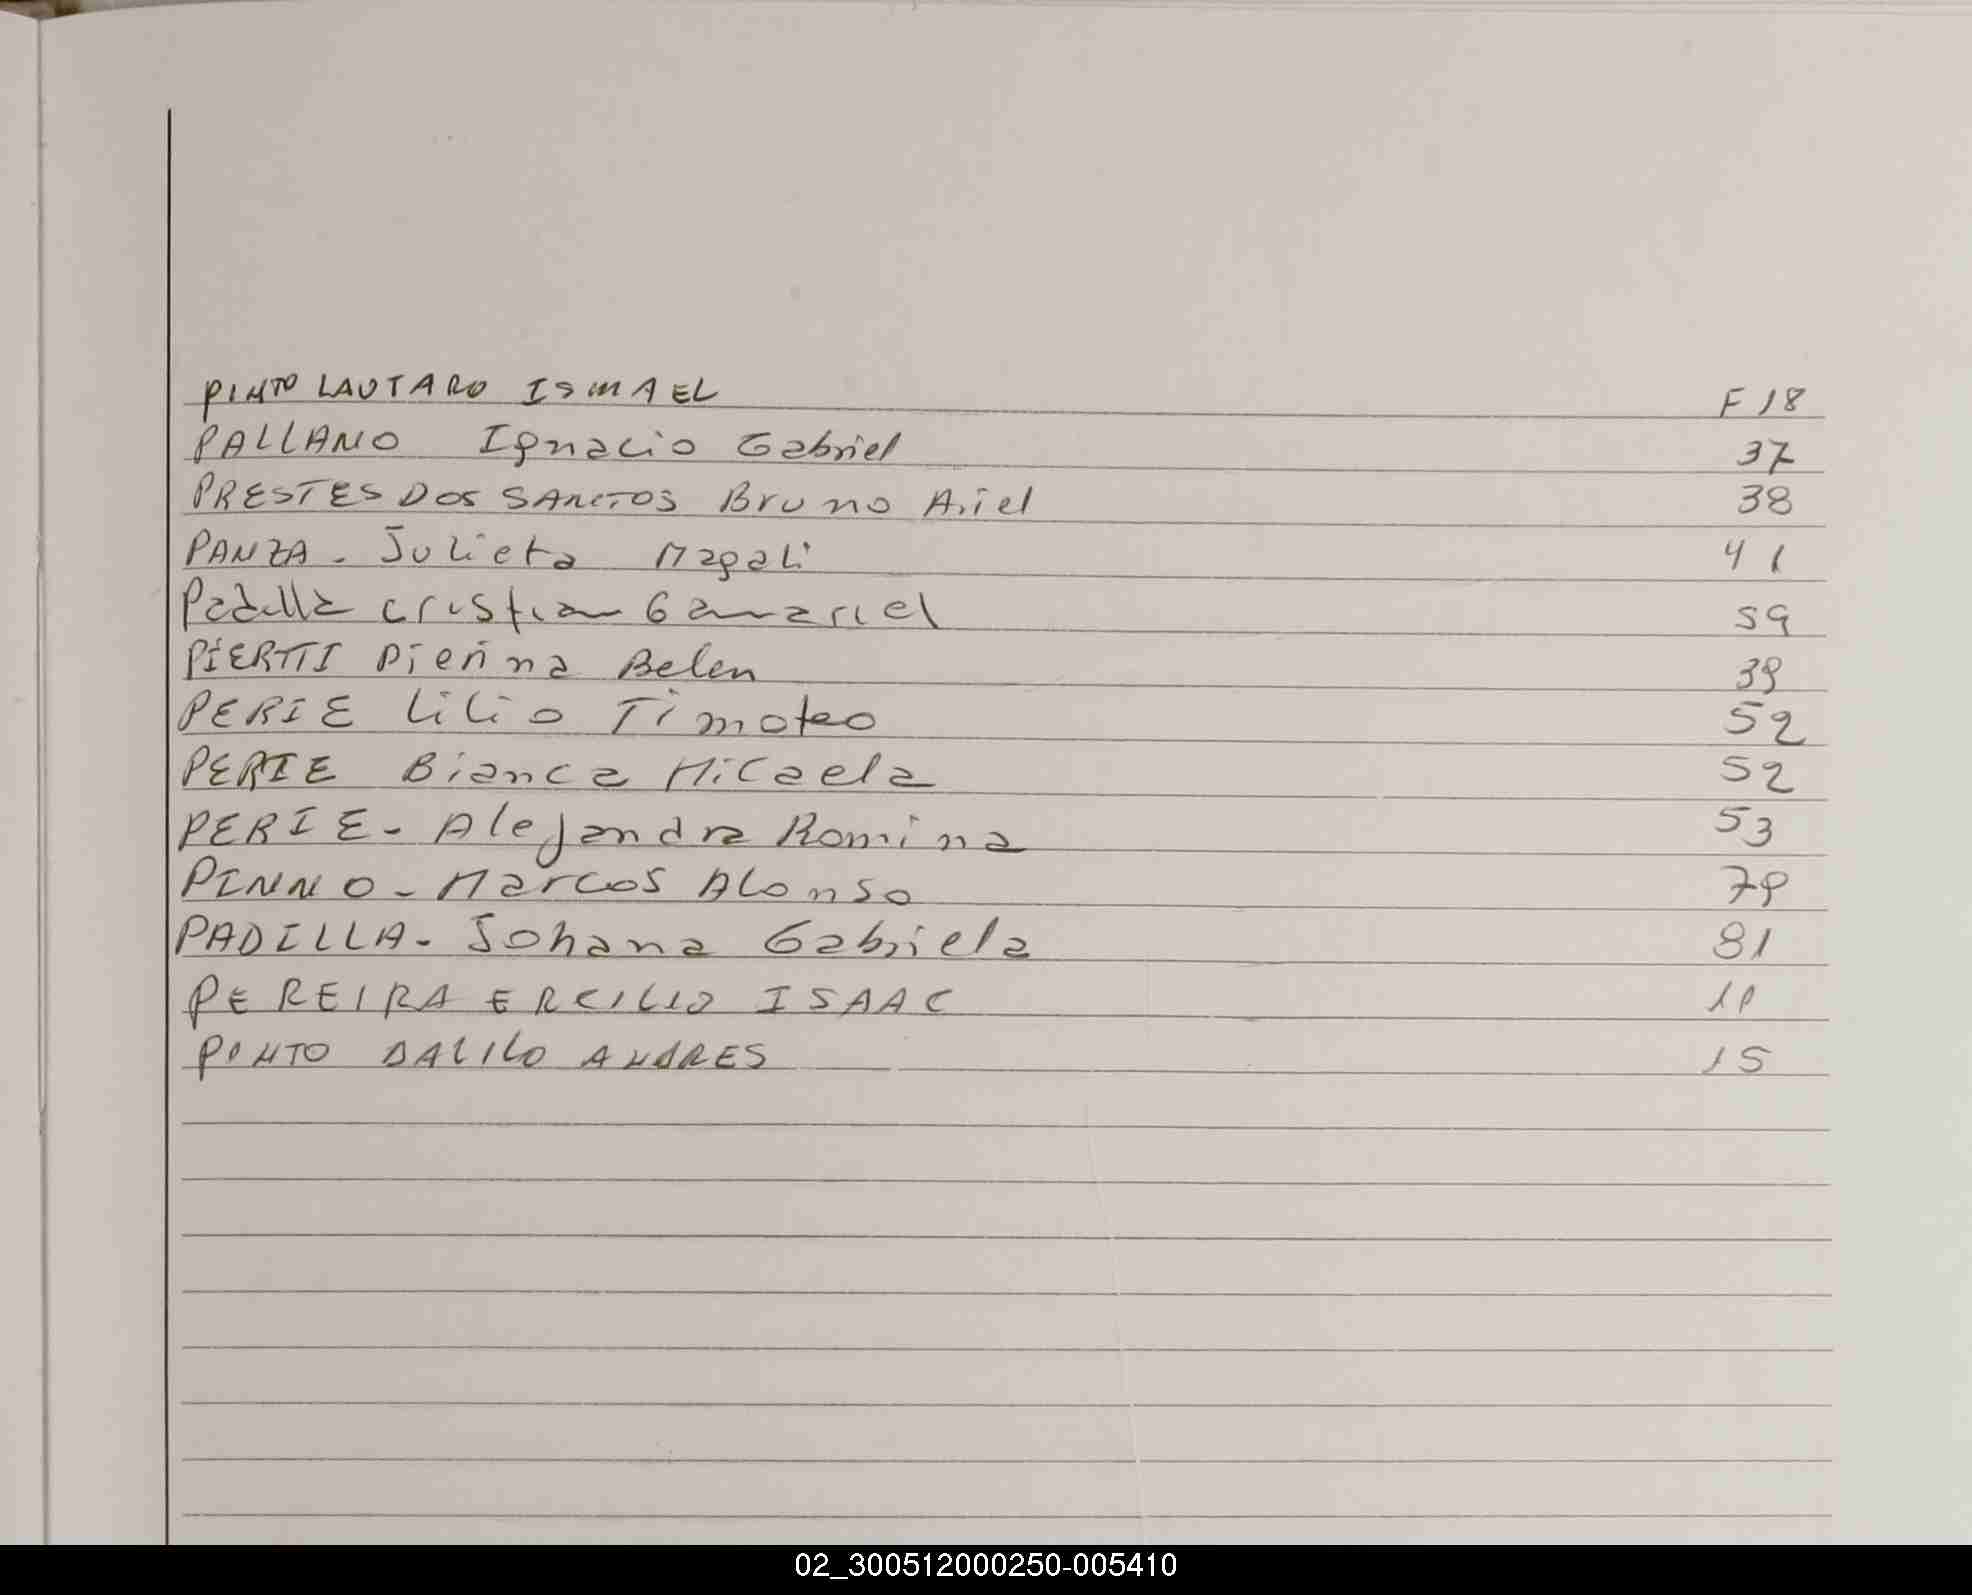 PINTO LAUTARO ISMAEL F 18
PALLANO Ignacio Gabriel 37
PRESTES DOS SANTOS Bruno Ariel 38
PANZA - Julieta Magali 41
Padilla Cristian Gamariel 59
PIERTTI Pierina Belen 39
PERIE Lilio Timoteo 52
PERIE Bianca Micaela 52
PERIE - Alejandra Romina 53
PINNO - Marcos Alonso 79
PADILLA - Johana Gabriela 81
PEREIRA ERCILIO ISAAC
PINTO DALILO ANDRES 15
02_300512000250-005410